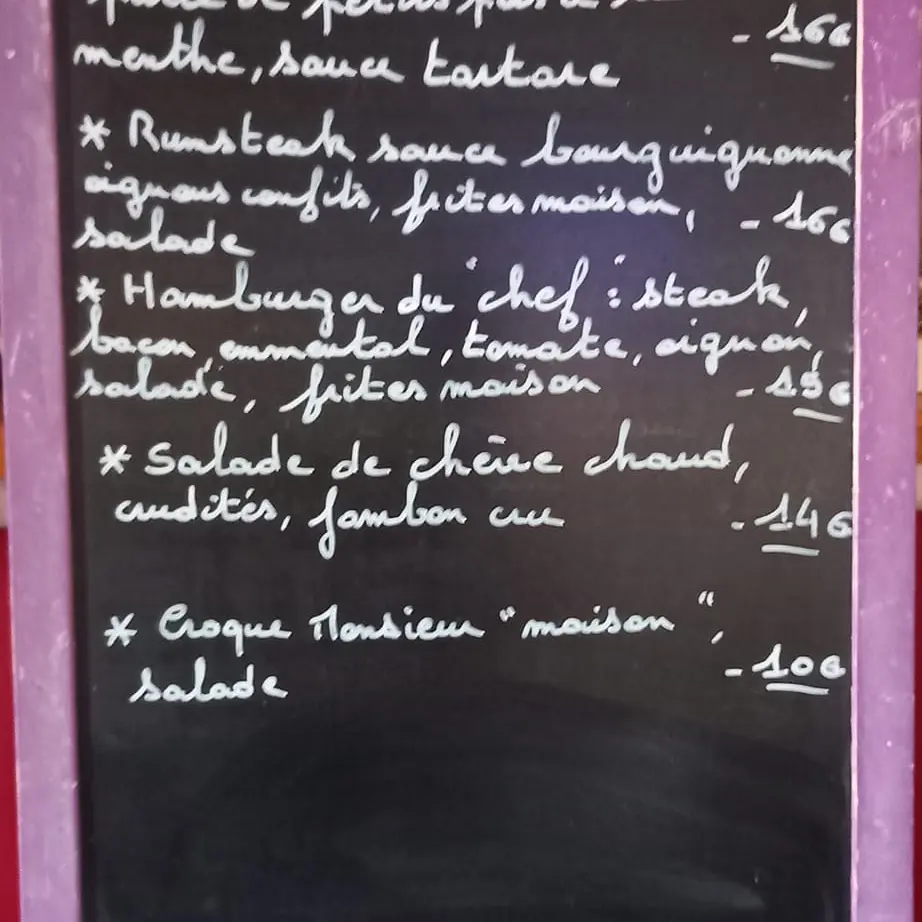 menthe, sauce tartare - 16€
* Rumsteak sauce bourguignonne
oignons confits, frites maison, - 16€
salade
* Hamburger du "chef" : steak,
bacon, emmental, tomate, oignon,
salade, frites maison - 15€
* Salade de chèvre chaud,
crudités, jambon cru - 14€
* Croque Monsieur "maison",
salade - 10€